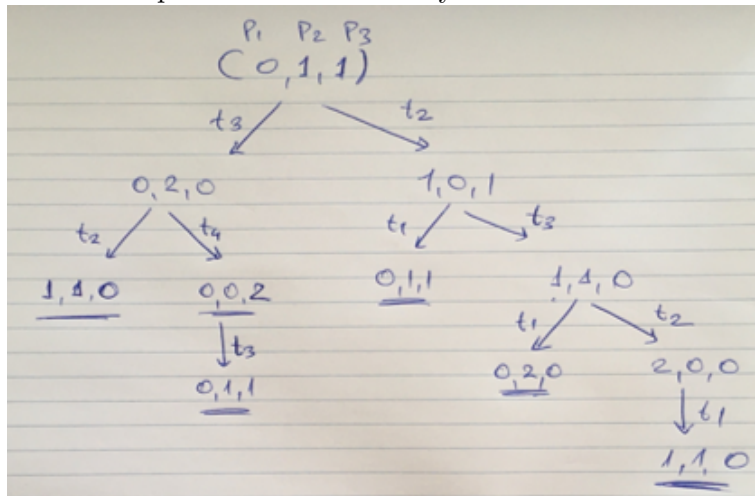 P1 P2 P3
(0,1,1)
t3 t2
0,2,0 1,0,1
t2 t4 t1 t3
1,1,0 0,0,2 0,1,1 1,1,0
t3 t1 t2
0,1,1 0,2,0 2,0,0
t1
1,1,0